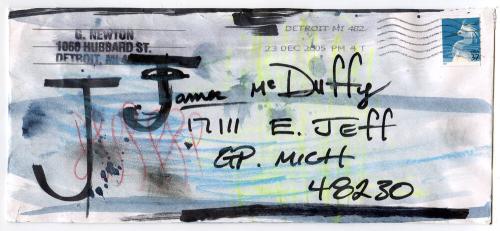 G. NEWTON
1060 HUBBARD ST.
DETROIT, MI
DETROIT MI 482
23 DEC 2005 PM 4 T
J
James McDuffy
17111 E. JEFF
GP. MICH
48230